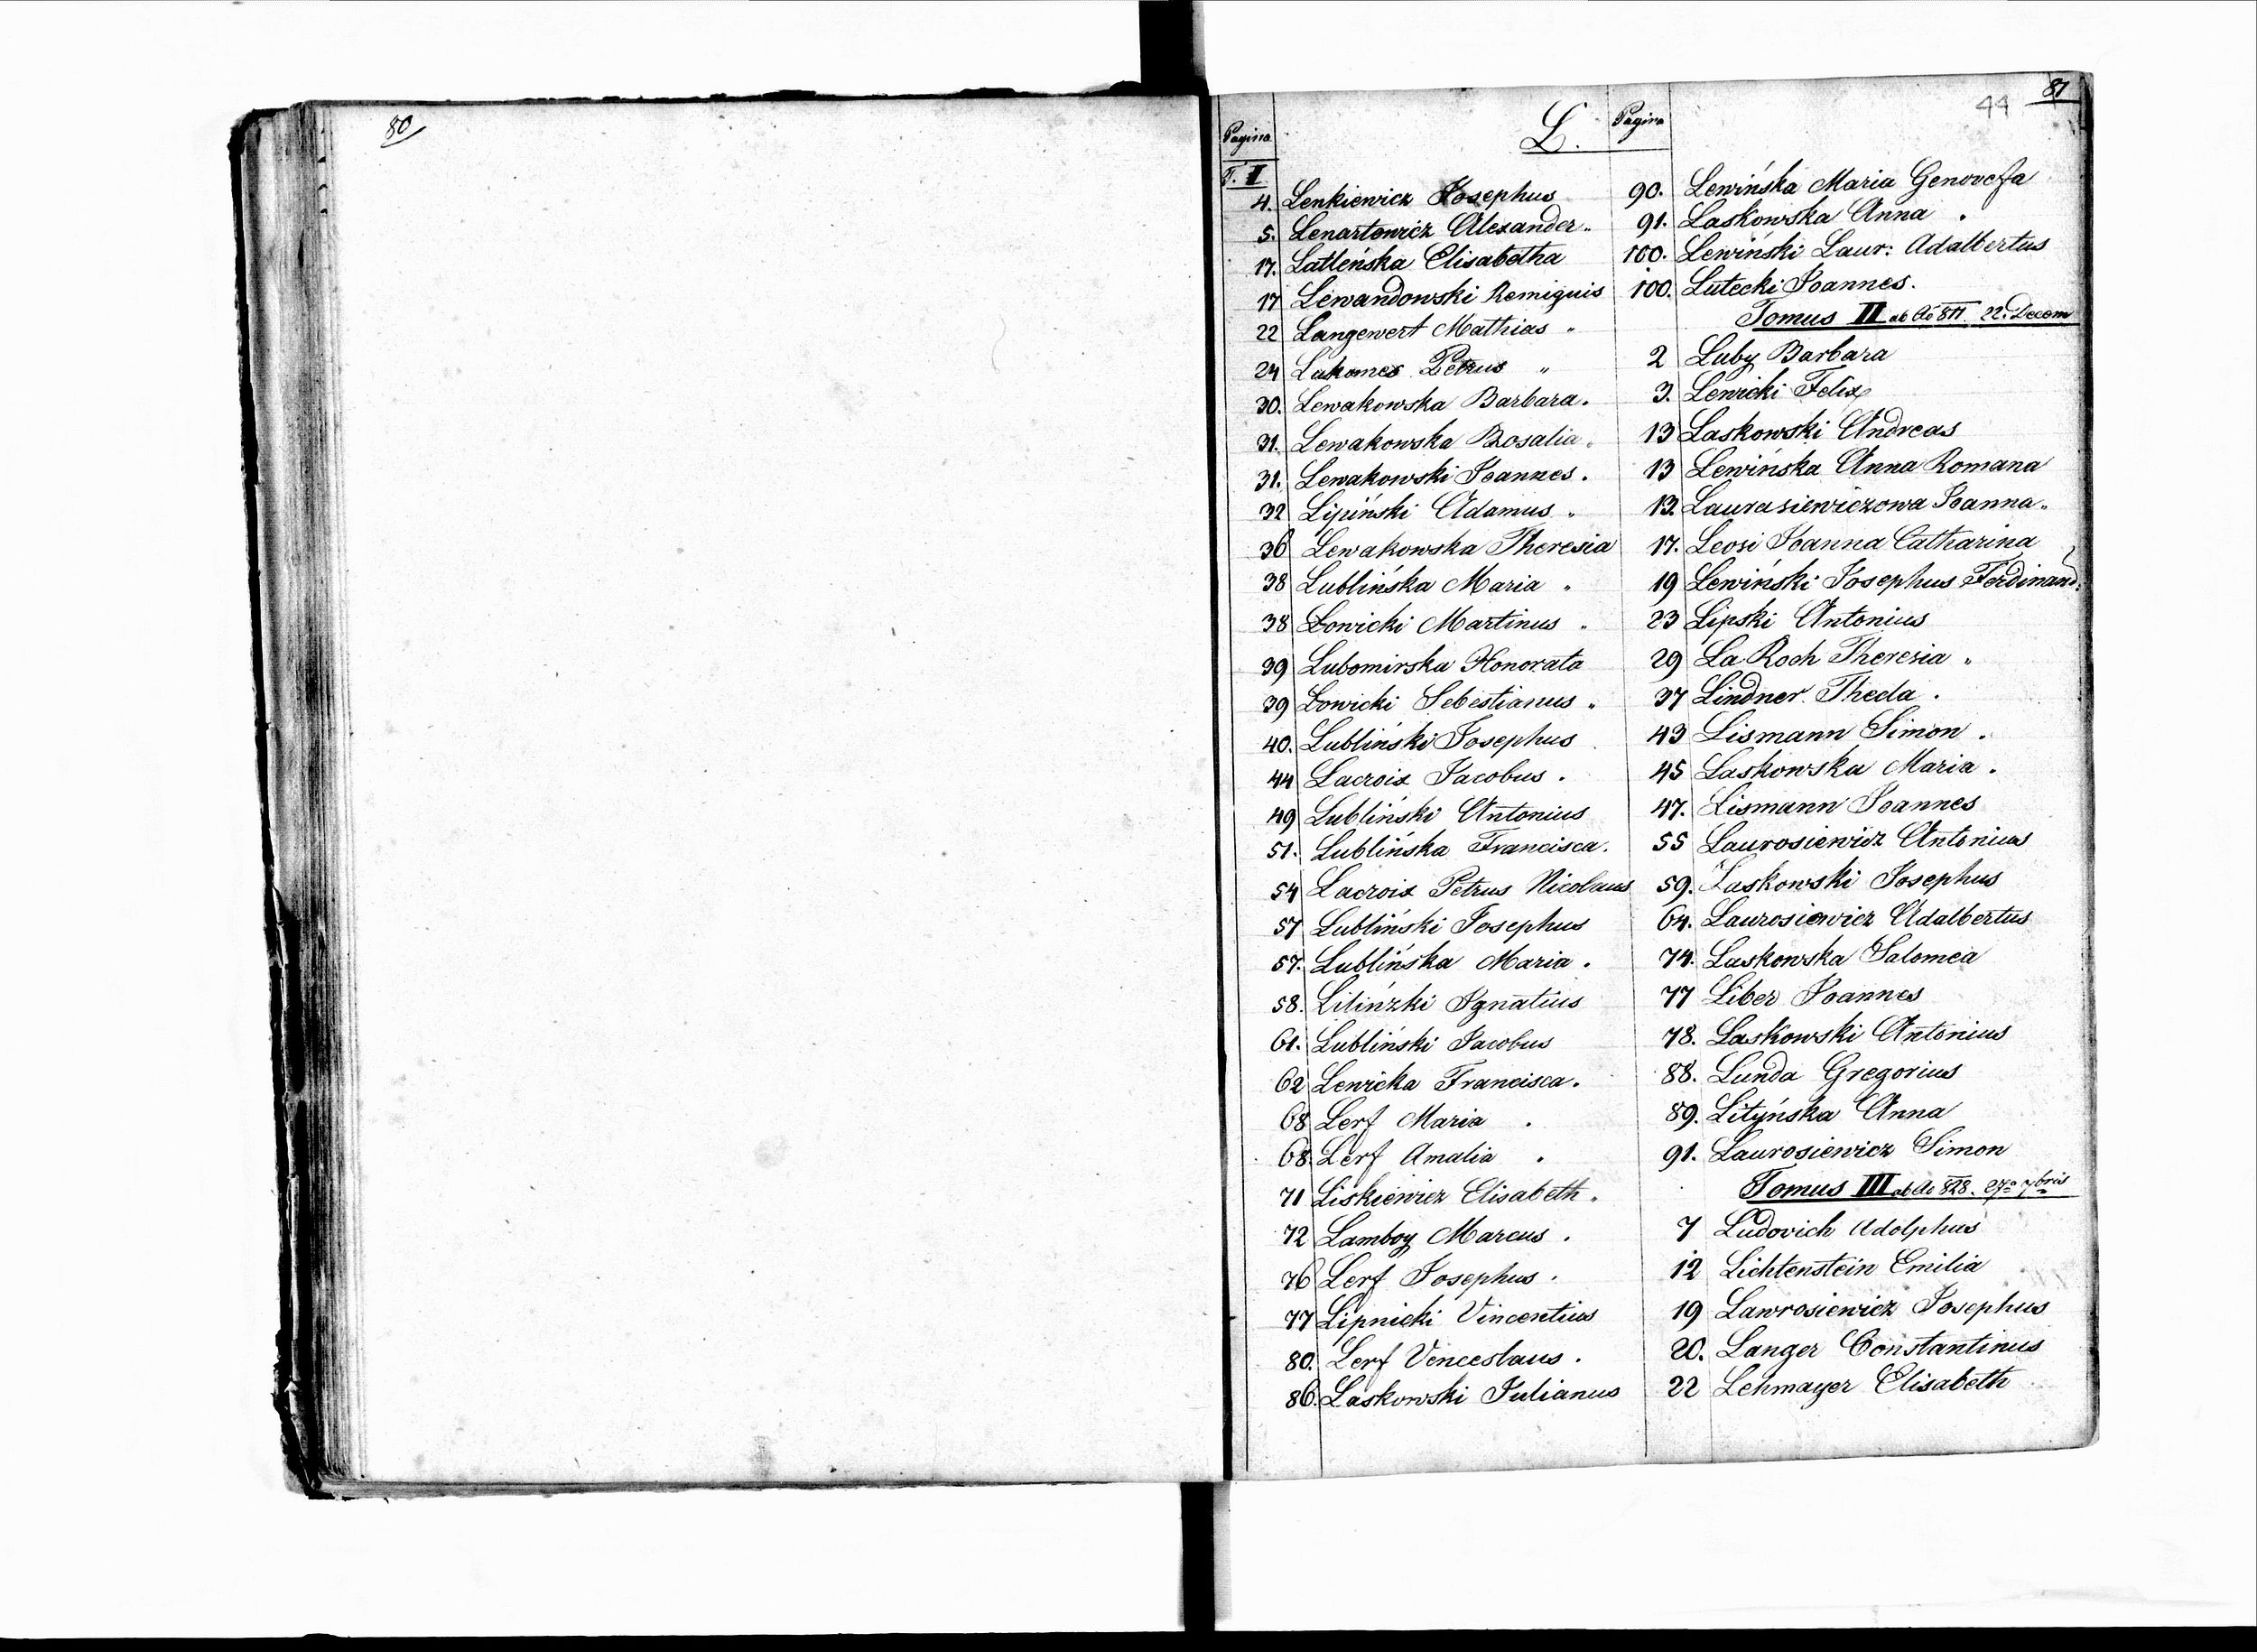 80
44
81
Pagina
L.
Pagina
T. I
4. Lenkiewicz Josephus
5. Lenartowicz Alexander "
17. Latleńska Elisabetha
17 Lewandowski Remiguis
22 Langewert Mathias "
24 Lakomes Petrus "
30. Lewakowska Barbara.
31. Lewakowska Rosalia "
31. Lewakowski Joannes.
32 Lipiński Adamus "
36 Lewakowska Theresia
38 Lublińska Maria "
38 Łowicki Martinus "
39 Lubomirska Honorata
39 Łowicki Sebestianus "
40. Lubliński Josephus
44 Lacroix Jacobus.
49 Lubliński Antonius
51. Lublińska Francisca.
54 Lacroix Petrus Nicolaus
57 Lubliński Josephus
57. Lublińska Maria.
58. Litińzki Ignatius
61. Lubliński Jacobus
62 Lewicka Francisca.
68 Lerf Maria.
68. Lerf Amalia.
71 Liskiewicz Elisabeth "
72 Lamboy Marcus.
76 Lerf Josephus.
77 Lipnicki Vincentius
80. Lerf Venceslaus.
86. Laskowski Julianus
90. Lewińska Maria Genovefa
91. Laskowska Anna.
100. Lewiński Laur: Adalbertus
100. Lutecki Joannes.
Tomus II ab Ao 811. 22. Decem
2 Luby Barbara
3. Lewicki Felix
13 Laskowski Andreas
13 Lewińska Anna Romana
13. Laurasiewiczowa Joanna "
17. Leosi Joanna Catharina
19 Lewiński Josephus Ferdinand:
23 Lipski Antonius
29 La Roch Theresia "
37 Lindner Thecla.
43 Lismann Simon.
45 Laskowska Maria.
47. Lismann Joannes
55 Laurosiewicz Antonius
59. Laskowski Josephus
64. Laurosiewicz Adalbertus
74. Laskowska Salomea
77 Liber Joannes
78. Laskowski Antonius
88. Lunda Gregorius
89. Lityńska Anna
91. Laurosiewicz Simon
Tomus III ab Ao 828. 27a 7bris
7 Ludovich Adolphus
12 Lichtenstein Emilia
19 Lawrosiewicz Josephus
20. Langer Constantinus
22 Lehmayer Elisabeth